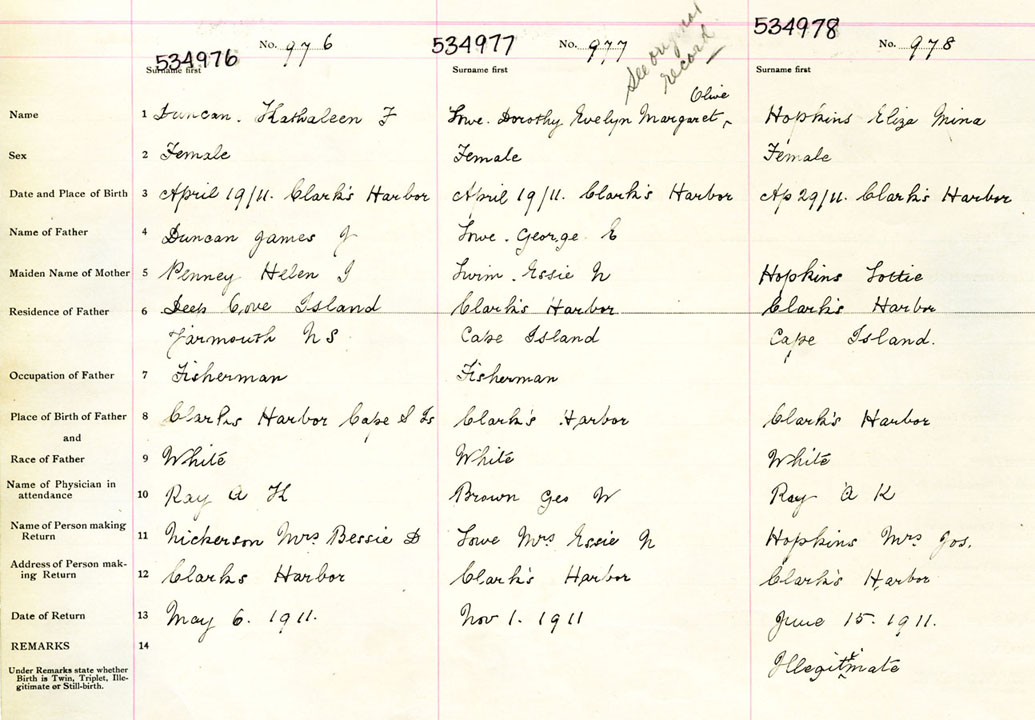 534976 No. 976 534977 No. 977 See original record 534978 No. 978
Surname first Surname first Surname first
Olive
Name 1 Duncan. Kathaleen F Lowe. Dorothy Evelyn Margaret ^ Hopkins Eliza Mina
Sex 2 Female Female Female
Date and Place of Birth 3 April 19/11. Clark's Harbor April 19/11. Clark's Harbor Ap 29/11. Clark's Harbor
Name of Father 4 Duncan James J Lowe. George E
Maiden Name of Mother 5 Penney Helen J Swim. Essie N Hopkins Lottie
Residence of Father 6 Deep Cove Island Clark's Harbor Clark's Harbor
Yarmouth N S. Cape Island Cape Island.
Occupation of Father 7 Fisherman Fisherman
Place of Birth of Father 8 Clarks Harbor Cape S Is Clark's Harbor Clark's Harbor
and
Race of Father 9 White White White
Name of Physician in
attendance 10 Ray A K Brown Geo W Ray A K
Name of Person making
Return 11 Nickerson Mrs Bessie D Lowe Mrs Essie N Hopkins Mrs Jos.
Address of Person mak-
ing Return 12 Clarks Harbor Clark's Harbor Clark's Harbor
Date of Return 13 May 6. 1911. Nov 1. 1911 June 15. 1911.
REMARKS 14
Under Remarks state whether
Birth is Twin, Triplet, Ille-
gitimate or Still-birth.
Illegitimate